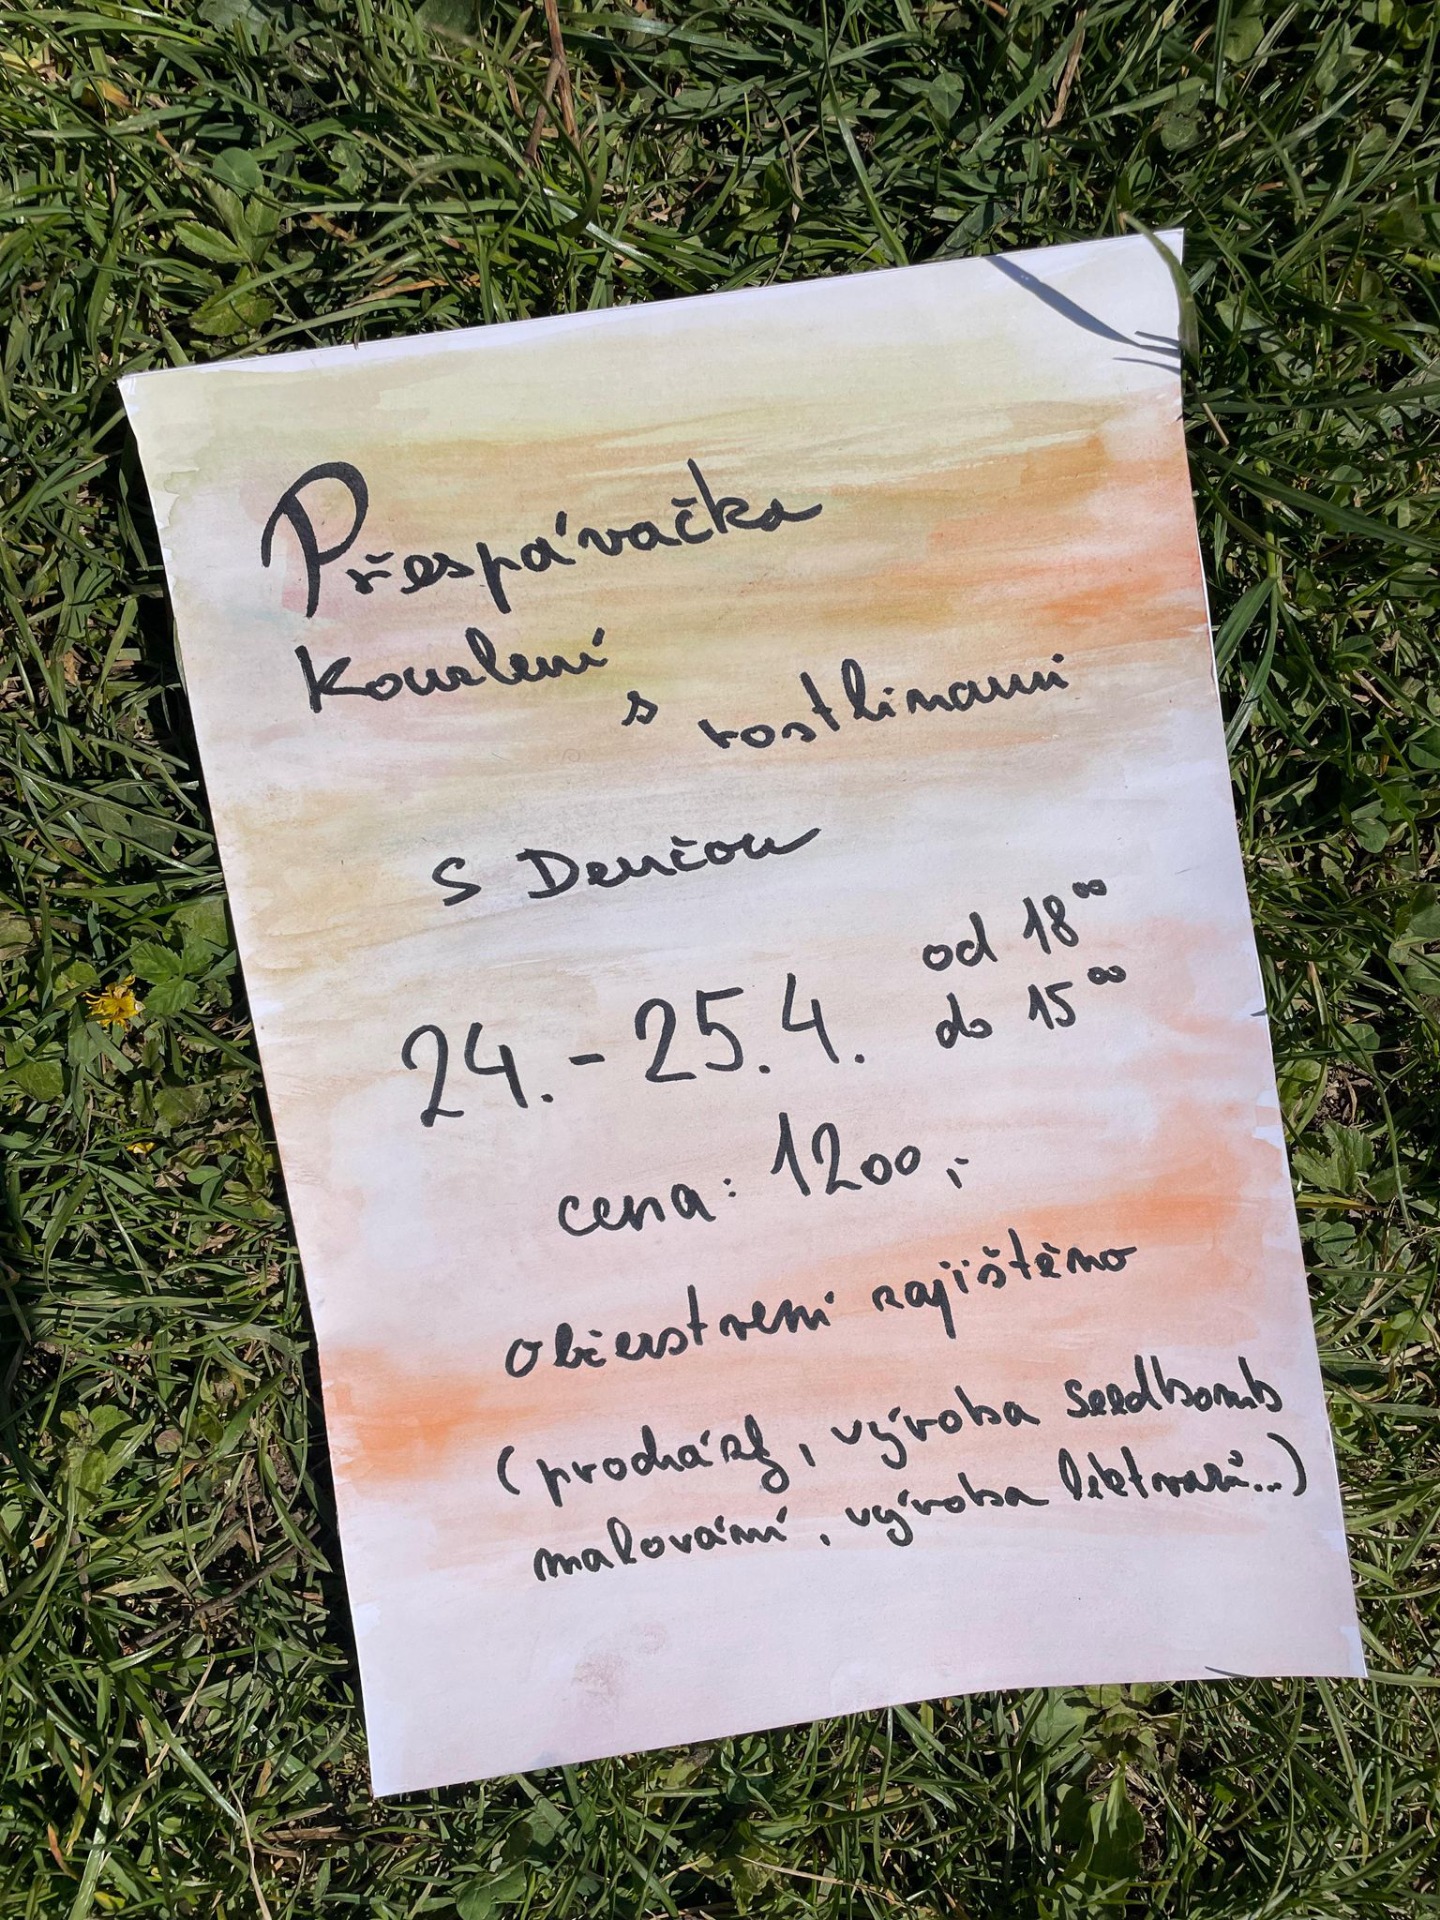 Přespávačka
Kouzlení s rostlinami
s Denčou
24. - 25. 4. od 18⁰⁰
do 15⁰⁰
cena: 1200,-
Občerstvení zajištěno
(procházky, výroba seedbomb
malování, výroba lektvarů...)